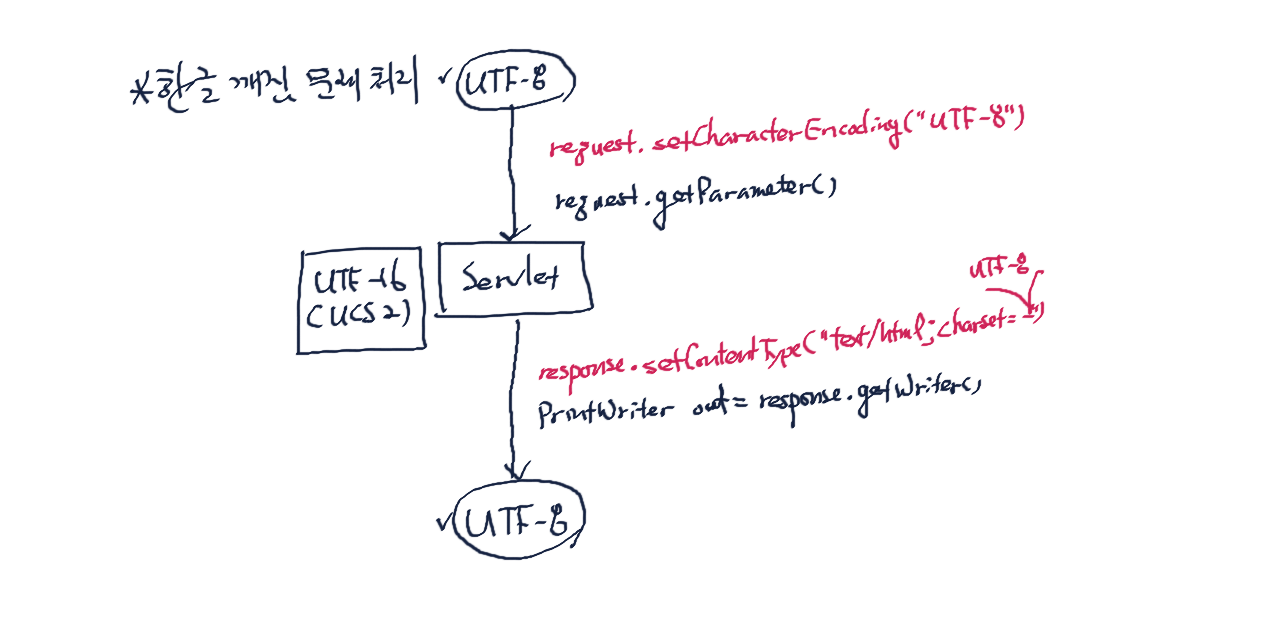 *한글 깨진 문제 처리 ✓ UTF-8
request.setCharacterEncoding("UTF-8")
request.getParameter()
UTF-16
(UCS2)
Servlet
UTF-8
response.setContentType("text/html;charset=-")
PrintWriter out= response.getWriter()
✓ UTF-8